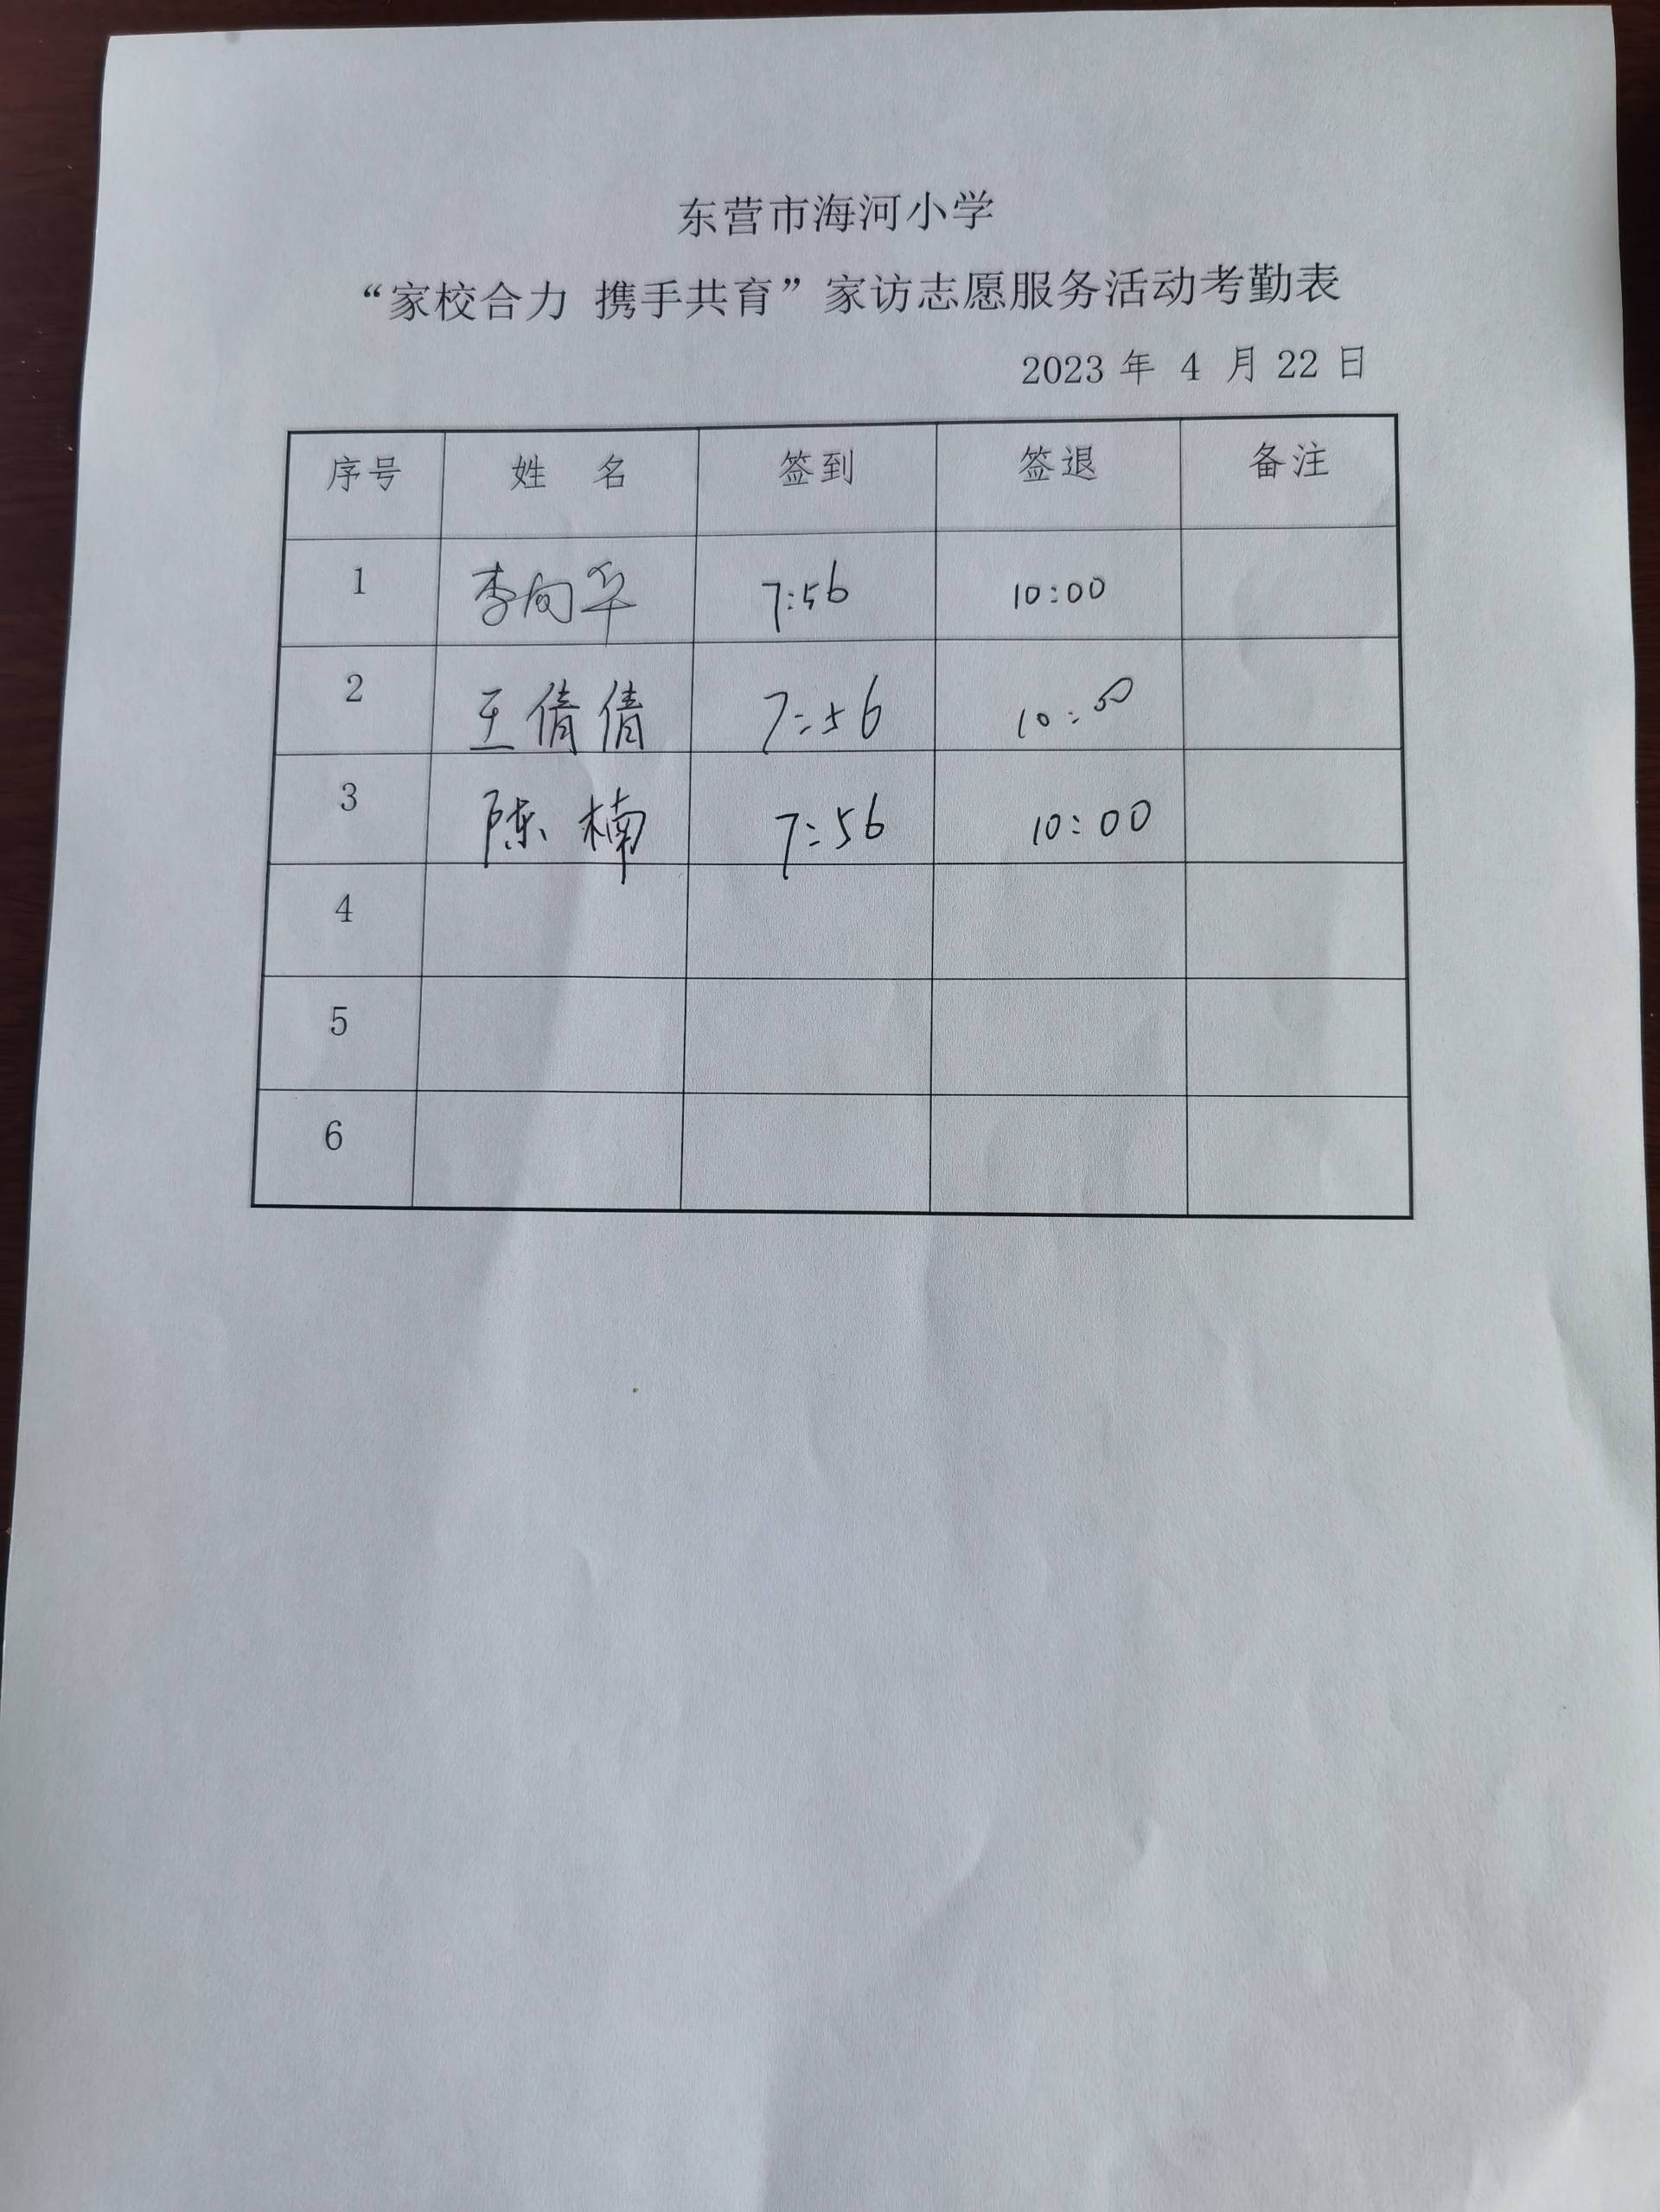 东营市海河小学
“家校合力 携手共育”家访志愿服务活动考勤表
2023 年 4 月 22 日
序号 姓 名 签到 签退 备注
1 李向华 7:56 10:00
2 王倩倩 7:56 10:00
3 陈楠 7:56 10:00
4
5
6